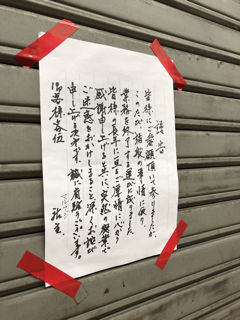 謹告
皆様にご愛顧頂いて参りましたが
このたび 諸般の事情に依り
業務を終了する運びに成りました
皆様の長年に亘るご厚情に心から
感謝申し上げると共に 突然の廃業で
ご迷惑をおかけしますこと、深くお詫び
申し上げる次第です。誠に有難うございます。
御客様各位